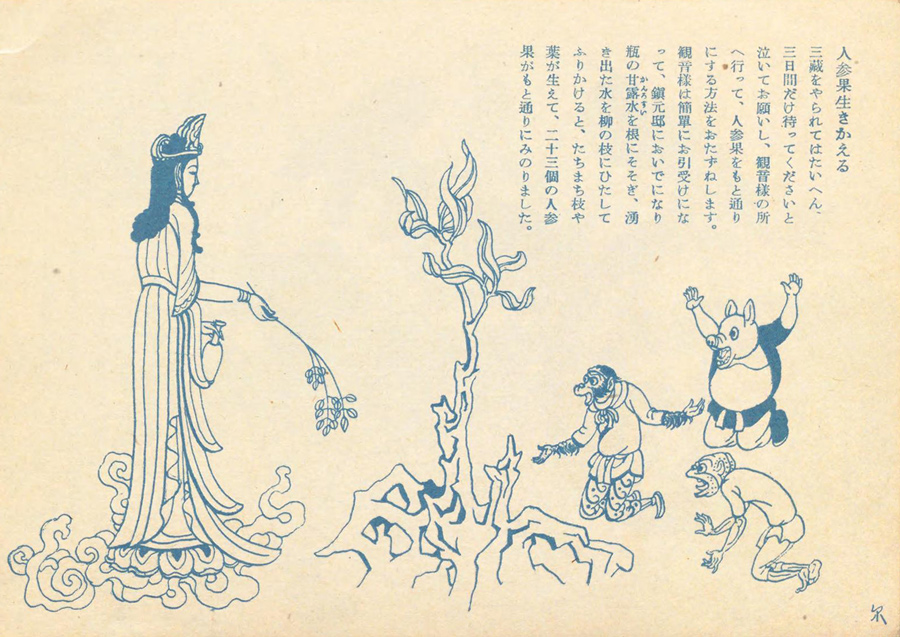 人参果生きかえる
三藏をやられてはたいへん、
三日間だけ待ってくださいと
泣いてお願いし、観音様の所
へ行って、人参果をもと通り
にする方法をおたずねします。
観音様は簡單にお引受けにな
って、鎭元邸においでになり
瓶の甘露水を根にそそぎ、湧
かんろすい
き出た水を柳の枝にひたして
ふりかけると、たちまち枝や
葉が生えて、二十三個の人参
果がもと通りにみのりました。